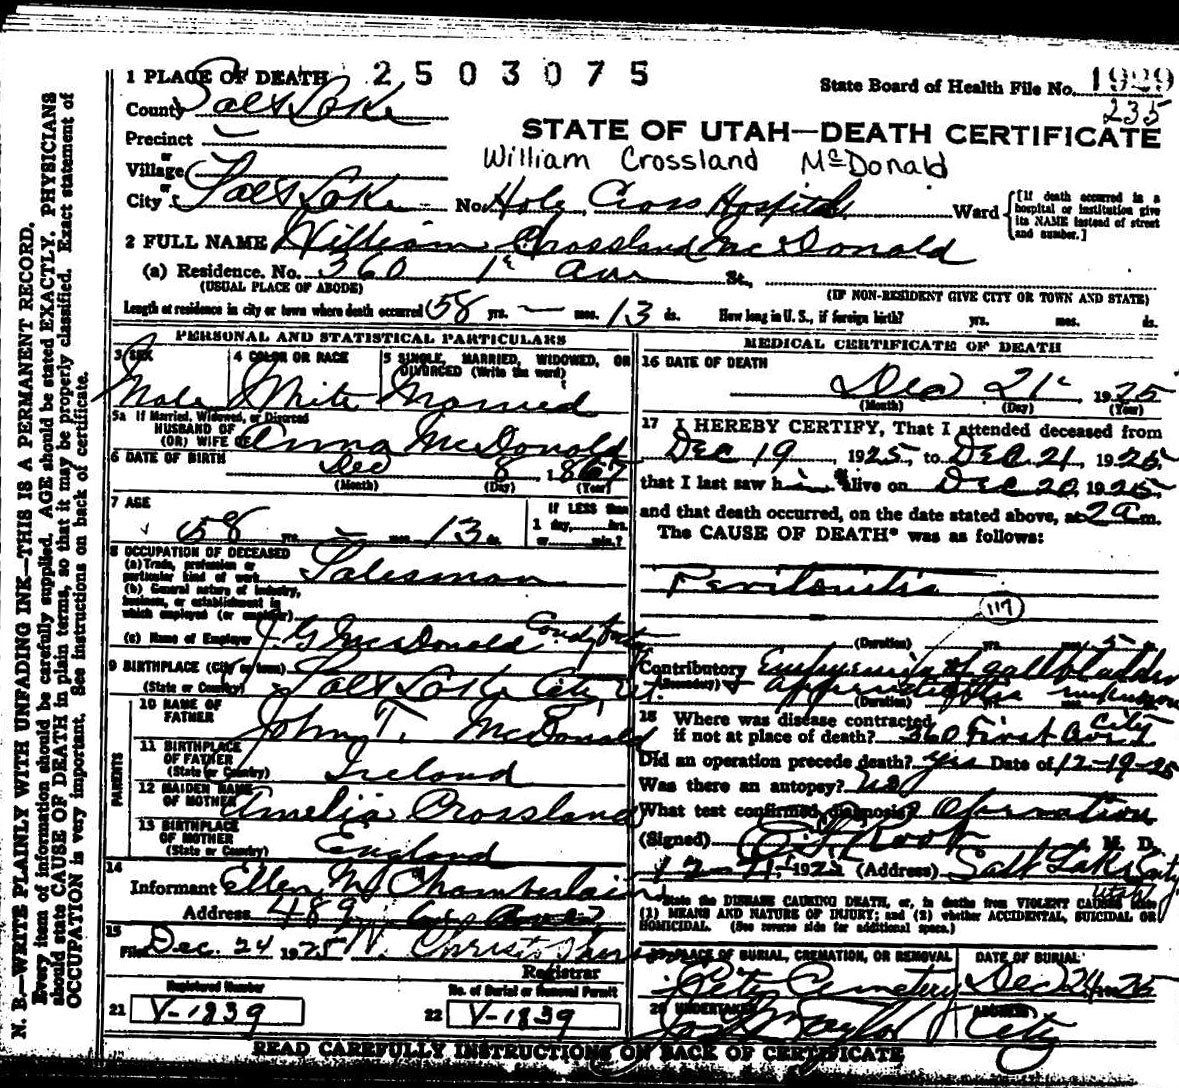 1 PLACE OF DEATH 2503075
State Board of Health File No. 1929
235
County Salt Lake
STATE OF UTAH—DEATH CERTIFICATE
Precinct —
William Crossland McDonald
or
Village
or
City Salt Lake No. Holy Cross Hospital Ward
[If death occurred in a hospital or institution give its NAME instead of street and number.]
2 FULL NAME William Crossland McDonald
(a) Residence. No. 360 1st Ave St.,
(USUAL PLACE OF ABODE) (IF NON-RESIDENT GIVE CITY OR TOWN AND STATE)
Length of residence in city or town where death occurred 58 yrs. — mos. 13 ds. How long in U. S., if foreign birth? yrs. mos. ds.
PERSONAL AND STATISTICAL PARTICULARS
3 SEX Male
4 COLOR OR RACE White
5 SINGLE, MARRIED, WIDOWED, OR DIVORCED (Write the word) Married
5a If Married, Widowed, or Divorced
HUSBAND OF
(OR) WIFE OF Anna McDonald
6 DATE OF BIRTH Dec 8, 1867
(Month) (Day) (Year)
7 AGE
58 yrs. — mos. 13 ds.
If LESS than
1 day, hrs.
or min.?
8 OCCUPATION OF DECEASED
(a) Trade, profession or
particular kind of work Salesman
(b) General nature of industry,
business, or establishment in
which employed (or employer)
(c) Name of Employer J. G. McDonald Candy
9 BIRTHPLACE (City or town)
(State or Country) Salt Lake City, Ut.
PARENTS
10 NAME OF
FATHER John T. McDonald
11 BIRTHPLACE
OF FATHER
(State or Country) Ireland
12 MAIDEN NAME
OF MOTHER Amelia Crossland
13 BIRTHPLACE
OF MOTHER
(State or Country) England
14
Informant Ellen M. Chamberlain
Address 489
15
Filed Dec. 24 1925
Registrar
Registered Number
21 V-1839
No. of Burial or Removal Permit
22 V-1839
MEDICAL CERTIFICATE OF DEATH
16 DATE OF DEATH
Dec 21 1925
(Month) (Day) (Year)
17 I HEREBY CERTIFY, That I attended deceased from
Dec 19, 1925, to Dec 21, 1925,
that I last saw him alive on Dec 20, 1925,
and that death occurred, on the date stated above, at 2 a m.
The CAUSE OF DEATH* was as follows:
Peritonitis
117
(Duration) yrs. mos. 5 ds.
Contributory Empyemia of gallbladder
(Secondary) + appendicitis unknown
(Duration)
18 Where was disease contracted
if not at place of death? 360 First Ave City
Did an operation precede death? Yes Date of 12-19-25
Was there an autopsy? No
What test confirmed diagnosis? Operation
(Signed) Root M. D.
12-21, 1925 (Address) Salt Lake City
Utah
*State the DISEASE CAUSING DEATH, or, in deaths from VIOLENT CAUSES state
(1) MEANS AND NATURE OF INJURY; and (2) whether ACCIDENTAL, SUICIDAL OR
HOMICIDAL. (See reverse side for additional space.)
19 PLACE OF BURIAL, CREMATION, OR REMOVAL City Cemetery
DATE OF BURIAL Dec 24 1925
20 UNDERTAKER Taylor
ADDRESS City
READ CAREFULLY INSTRUCTIONS ON BACK OF CERTIFICATE
N. B.—WRITE PLAINLY WITH UNFADING INK—THIS IS A PERMANENT RECORD.
Every item of information should be carefully supplied. AGE should be stated EXACTLY. PHYSICIANS
should state CAUSE OF DEATH in plain terms, so that it may be properly classified. Exact statement of
OCCUPATION is very important. See instructions on back of certificate.